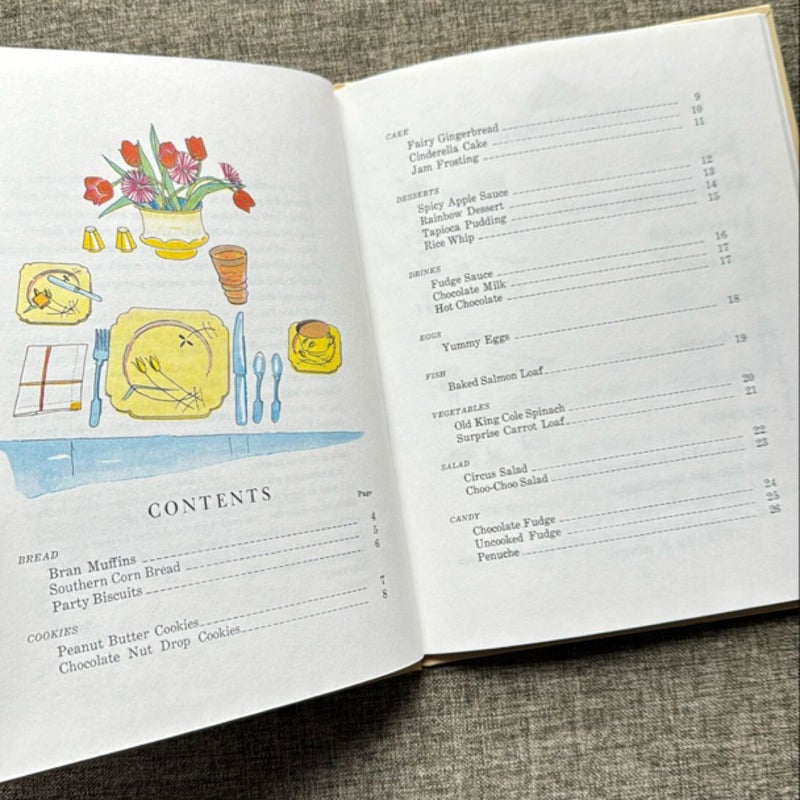 CONTENTS
Page
BREAD
Bran Muffins 4
Southern Corn Bread 5
Party Biscuits 6
COOKIES
Peanut Butter Cookies 7
Chocolate Nut Drop Cookies 8
CAKE
Fairy Gingerbread 9
Cinderella Cake 10
Jam Frosting 11
DESSERTS
Spicy Apple Sauce 12
Rainbow Dessert 13
Tapioca Pudding 14
Rice Whip 15
DRINKS
Fudge Sauce 16
Chocolate Milk 17
Hot Chocolate 17
EGGS
Yummy Eggs 18
FISH
Baked Salmon Loaf 19
VEGETABLES
Old King Cole Spinach 20
Surprise Carrot Loaf 21
SALAD
Circus Salad 22
Choo-Choo Salad 23
CANDY
Chocolate Fudge 24
Uncooked Fudge 25
Penuche 26